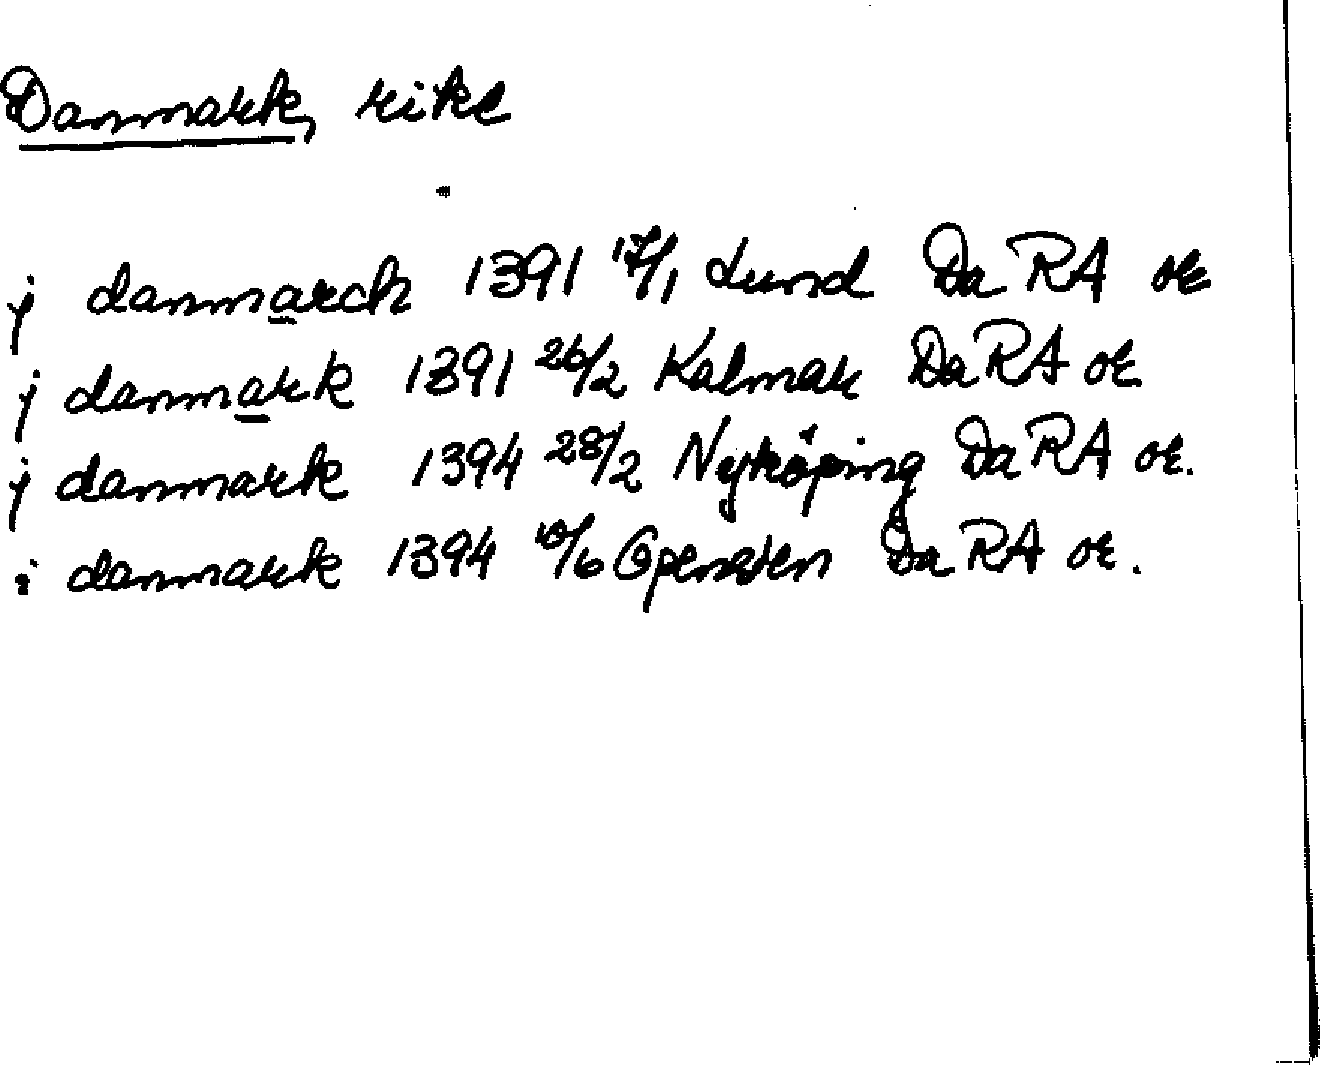 Danmark, rike
j danmarck 1391 17/1 Lund DaRA or
j danmark 1391 26/2 Kalmar DaRA or
j danmark 1394 28/2 Nyköping DaRA or.
i danmark 1394 10/6 DaRA or.